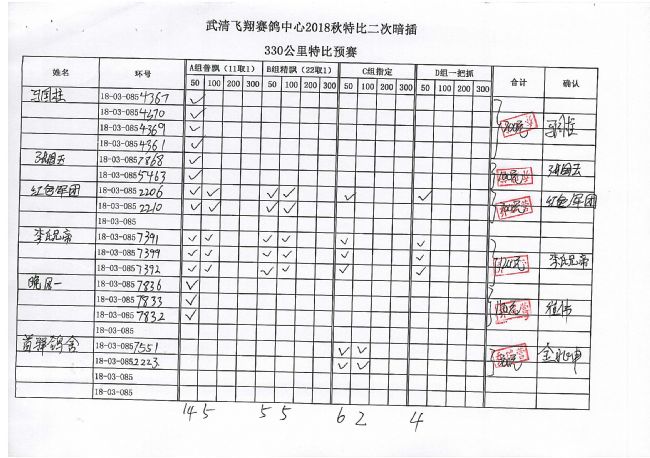 武清飞翔赛鸽中心2018秋特比二次暗插
330公里特比预赛
姓名 环号 A组普飘（11取1） B组精飘（22取1） C组指定 D组一把抓 合计 确认
50 100 200 300 50 100 200 300 50 100 200 300 50 100 200 300
18-03-0854367 ✓
18-03-0854670 ✓
18-03-0854369 ✓
18-03-0854361 ✓
张国玉 18-03-0857868 ✓ 张国玉
18-03-0855463 ✓
红色军团 18-03-0852206 ✓ ✓ ✓ ✓ ✓ ✓ 红色军团
18-03-0852210 ✓ ✓ ✓ ✓
18-03-085
李氏兄弟 18-03-0857391 ✓ ✓ ✓ ✓ ✓ ✓
18-03-0857399 ✓ ✓ ✓ ✓ ✓ ✓ 李氏兄弟
18-03-0857392 ✓ ✓ ✓ ✓ ✓ ✓
18-03-0857836 ✓
18-03-0857833 ✓
18-03-0857832 ✓
18-03-085
18-03-0857551 ✓ ✓
18-03-0852223 ✓ ✓
18-03-085
18-03-085
14 5 5 5 6 2 4